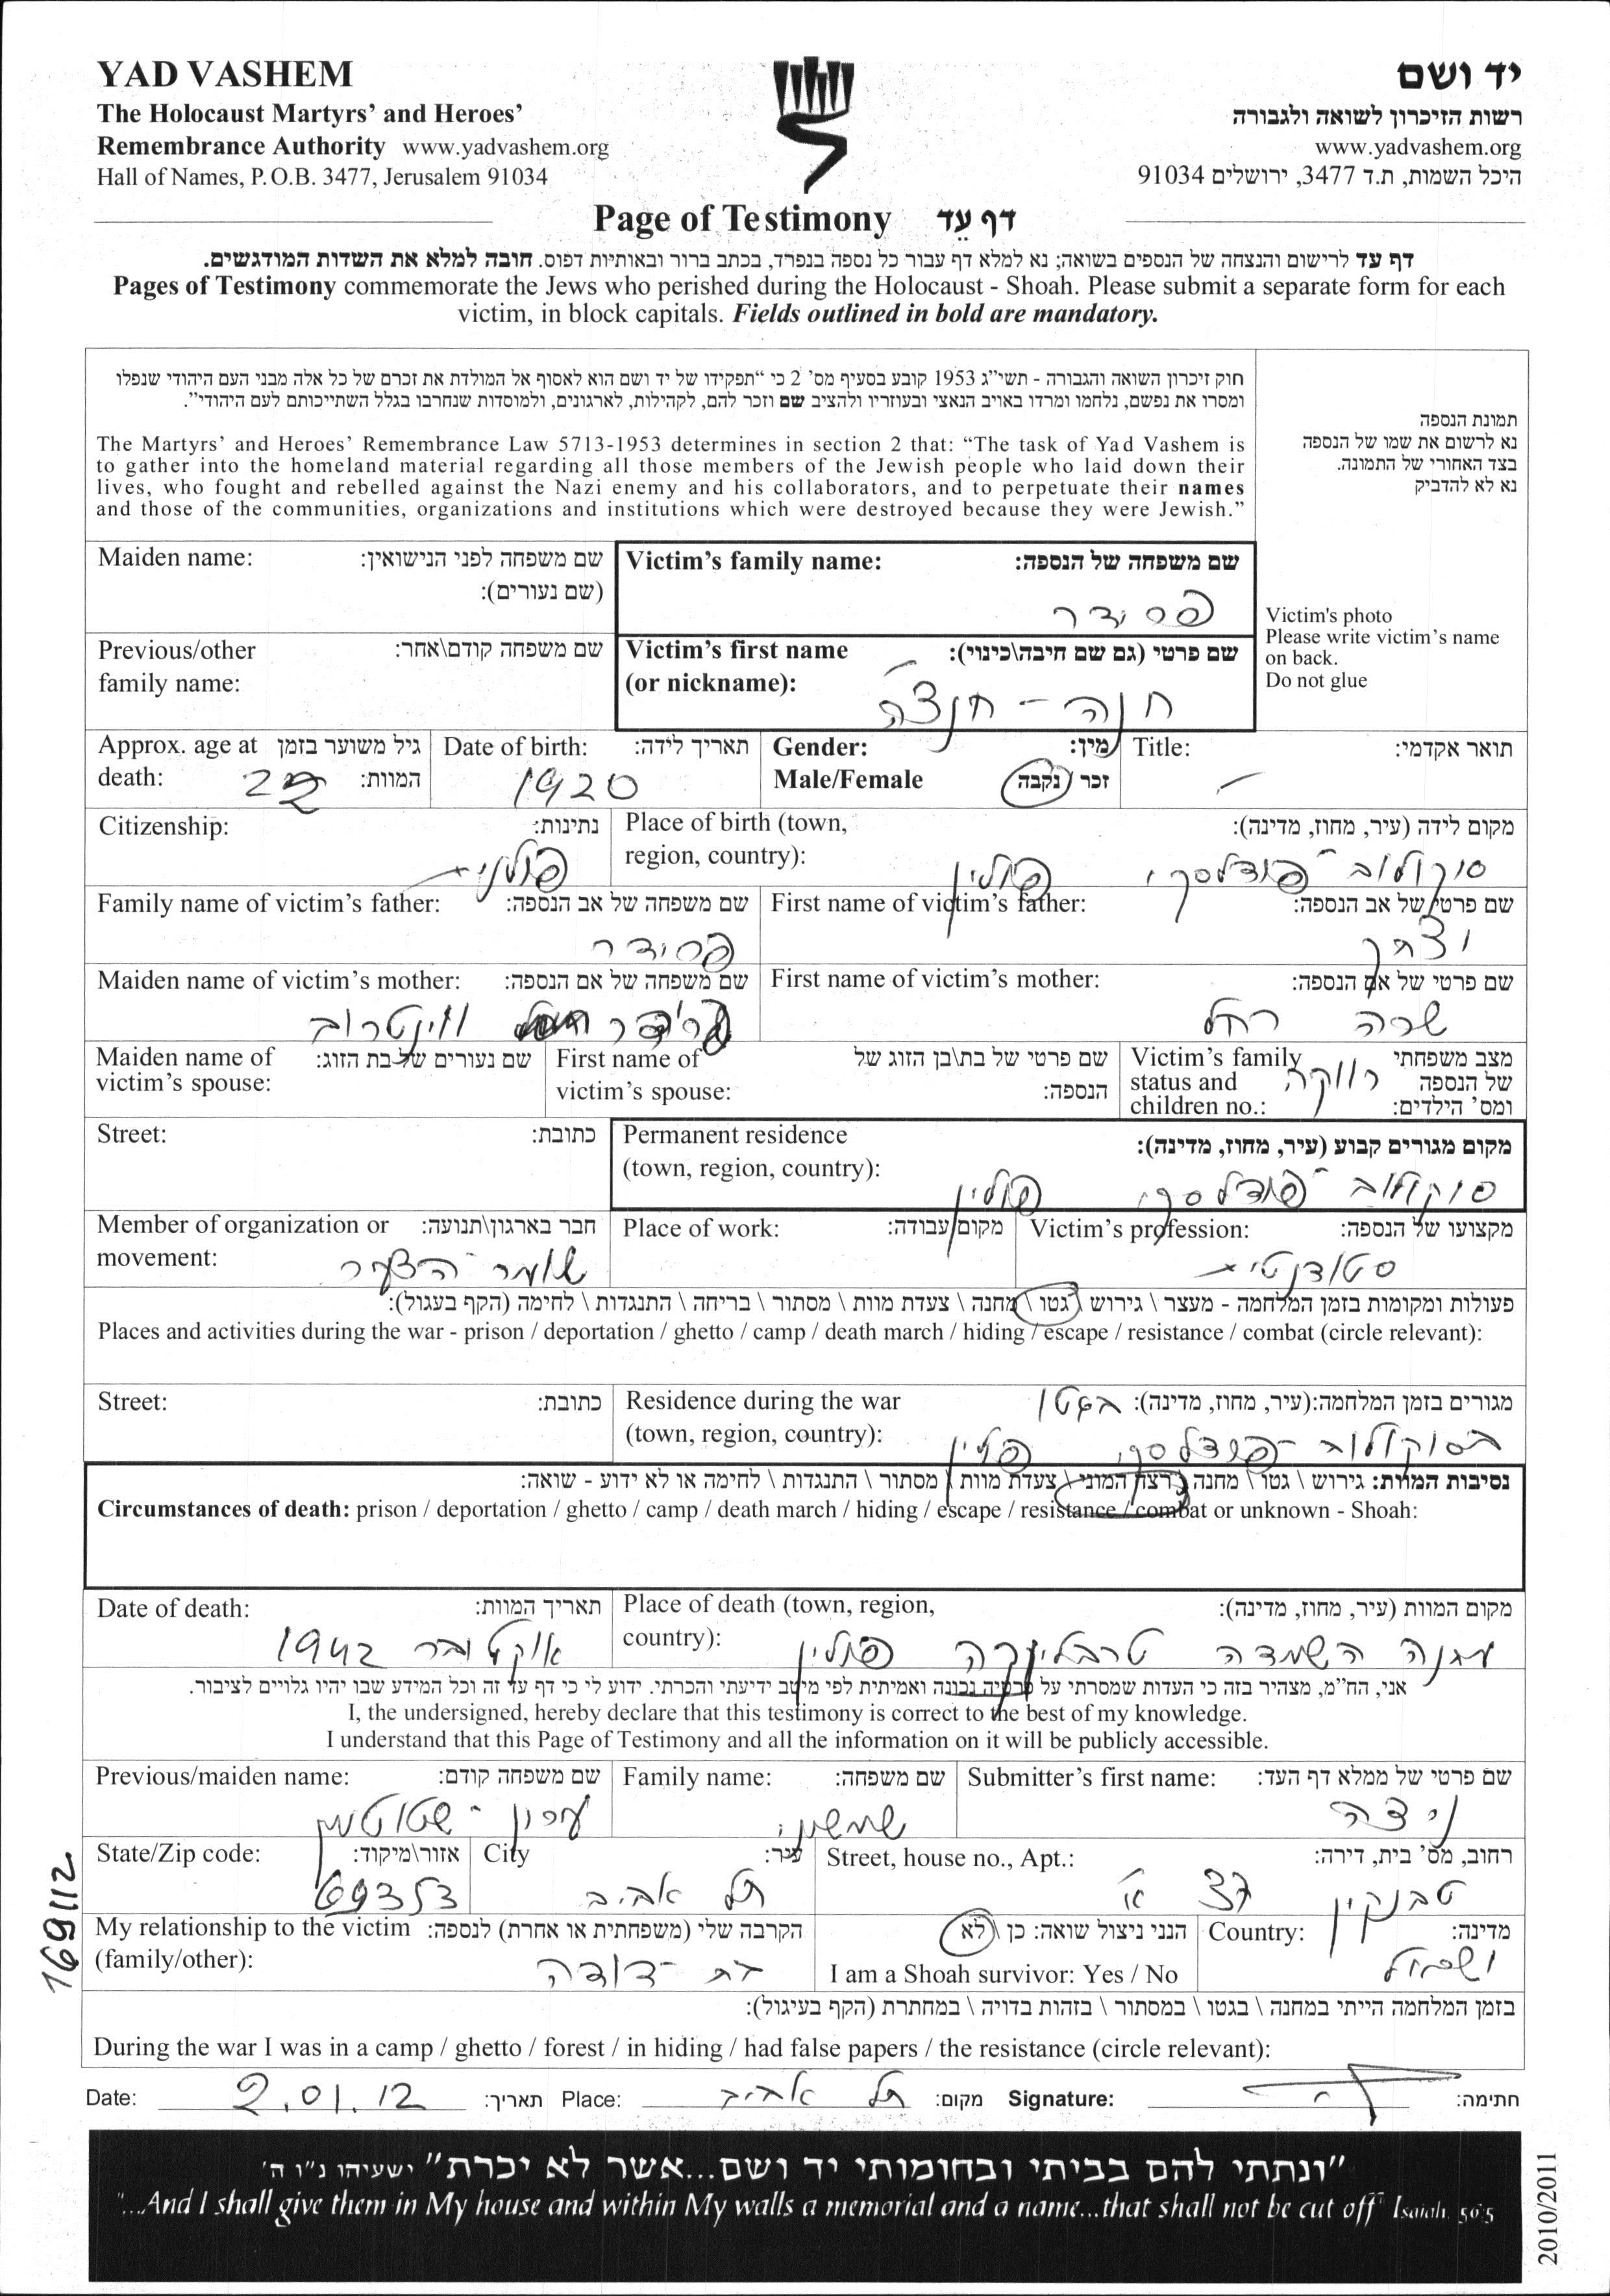 YAD VASHEM
The Holocaust Martyrs' and Heroes'
Remembrance Authority www.yadvashem.org
Hall of Names, P.O.B. 3477, Jerusalem 91034
יד ושם
רשות הזיכרון לשואה ולגבורה
www.yadvashem.org
היכל השמות, ת.ד 3477, ירושלים 91034
Page of Testimony דף עֵד
דף עד לרישום והנצחה של הנספים בשואה; נא למלא דף עבור כל נספה בנפרד, בכתב ברור ובאותיות דפוס. חובה למלא את השדות המודגשים.
Pages of Testimony commemorate the Jews who perished during the Holocaust - Shoah. Please submit a separate form for each
victim, in block capitals. Fields outlined in bold are mandatory.
חוק זיכרון השואה והגבורה - תשי"ג 1953 קובע בסעיף מס' 2 כי "תפקידו של יד ושם הוא לאסוף אל המולדת את זכרם של כל אלה מבני העם היהודי שנפלו
ומסרו את נפשם, נלחמו ומרדו באויב הנאצי ובעוזריו ולהציב שם וזכר להם, לקהילות, לארגונים, ולמוסדות שנחרבו בגלל השתייכותם לעם היהודי".
The Martyrs' and Heroes' Remembrance Law 5713-1953 determines in section 2 that: "The task of Yad Vashem is
to gather into the homeland material regarding all those members of the Jewish people who laid down their
lives, who fought and rebelled against the Nazi enemy and his collaborators, and to perpetuate their names
and those of the communities, organizations and institutions which were destroyed because they were Jewish."
תמונת הנספה
נא לרשום את שמו של הנספה
בצד האחורי של התמונה.
נא לא להדביק
Victim's photo
Please write victim's name
on back.
Do not glue
Maiden name: שם משפחה לפני הנישואין:
(שם נעורים):
Victim's family name: שם משפחה של הנספה:
פסידר
Previous/other שם משפחה קודם\אחר:
family name:
Victim's first name שם פרטי (גם שם חיבה\כינוי):
(or nickname):
חנה - חנצ'ה
Approx. age at גיל משוער בזמן
death: המוות: 22
Date of birth: תאריך לידה:
1920
Gender: מין:
Male/Female זכר / נקבה
Title: תואר אקדמי:
Citizenship: נתינות:
פולניה
Place of birth (town, מקום לידה (עיר, מחוז, מדינה):
region, country):
סוקולוב - פודלסקי פולין
Family name of victim's father: שם משפחה של אב הנספה:
פסידר
First name of victim's father: שם פרטי של אב הנספה:
יצחק
Maiden name of victim's mother: שם משפחה של אם הנספה:
וינטרוב
First name of victim's mother: שם פרטי של אם הנספה:
שרה רחל
Maiden name of שם נעורים של בת הזוג:
victim's spouse:
First name of שם פרטי של בת\בן הזוג של
victim's spouse: הנספה:
Victim's family מצב משפחתי
status and של הנספה
children no.: ומס' הילדים:
רווקה
Street: כתובת:
Permanent residence מקום מגורים קבוע (עיר, מחוז, מדינה):
(town, region, country):
סוקולוב - פודלסקי פולין
Member of organization or חבר בארגון\תנועה:
movement: שומר הצעיר
Place of work: מקום עבודה:
Victim's profession: מקצועו של הנספה:
סטודנטית
פעולות ומקומות בזמן המלחמה - מעצר \ גירוש \ גטו \ מחנה \ צעדת מוות \ מסתור \ בריחה \ התנגדות \ לחימה (הקף בעגול):
Places and activities during the war - prison / deportation / ghetto / camp / death march / hiding / escape / resistance / combat (circle relevant):
Street: כתובת:
Residence during the war מגורים בזמן המלחמה:(עיר, מחוז, מדינה): בגטו
(town, region, country):
בסוקולוב - פודלסקי פולין
נסיבות המוות: גירוש \ גטו \ מחנה \ רצח המוני \ צעדת מוות \ מסתור \ התנגדות \ לחימה או לא ידוע - שואה:
Circumstances of death: prison / deportation / ghetto / camp / death march / hiding / escape / resistance / combat or unknown - Shoah:
Date of death: תאריך המוות:
אוקטובר 1942
Place of death (town, region, מקום המוות (עיר, מחוז, מדינה):
country):
מחנה השמדה טרבלינקה פולין
אני, הח"מ, מצהיר בזה כי העדות שמסרתי על פרטיה נכונה ואמיתית לפי מיטב ידיעתי והכרתי. ידוע לי כי דף עד זה וכל המידע שבו יהיו גלויים לציבור.
I, the undersigned, hereby declare that this testimony is correct to the best of my knowledge.
I understand that this Page of Testimony and all the information on it will be publicly accessible.
Previous/maiden name: שם משפחה קודם:
Family name: שם משפחה:
שמשוני
Submitter's first name: שם פרטי של ממלא דף העד:
ניצה
State/Zip code: אזור\מיקוד:
69353
City עיר:
תל אביב
Street, house no., Apt.: רחוב, מס' בית, דירה:
טבנקין 37 א'
My relationship to the victim הקרבה שלי (משפחתית או אחרת) לנספה:
(family/other): בת - דודה
הנני ניצול שואה: כן \ לא
I am a Shoah survivor: Yes / No
Country: מדינה:
ישראל
בזמן המלחמה הייתי במחנה \ בגטו \ במסתור \ בזהות בדויה \ במחתרת (הקף בעיגול):
During the war I was in a camp / ghetto / forest / in hiding / had false papers / the resistance (circle relevant):
Date: 2.01.12 תאריך: Place: תל אביב מקום: Signature: חתימה:
"ונתתי להם בביתי ובחומותי יד ושם...אשר לא יכרת" ישעיהו נ"ו ה'
"...And I shall give them in My house and within My walls a memorial and a name...that shall not be cut off" Isaiah, 56:5
169112
2010/2011